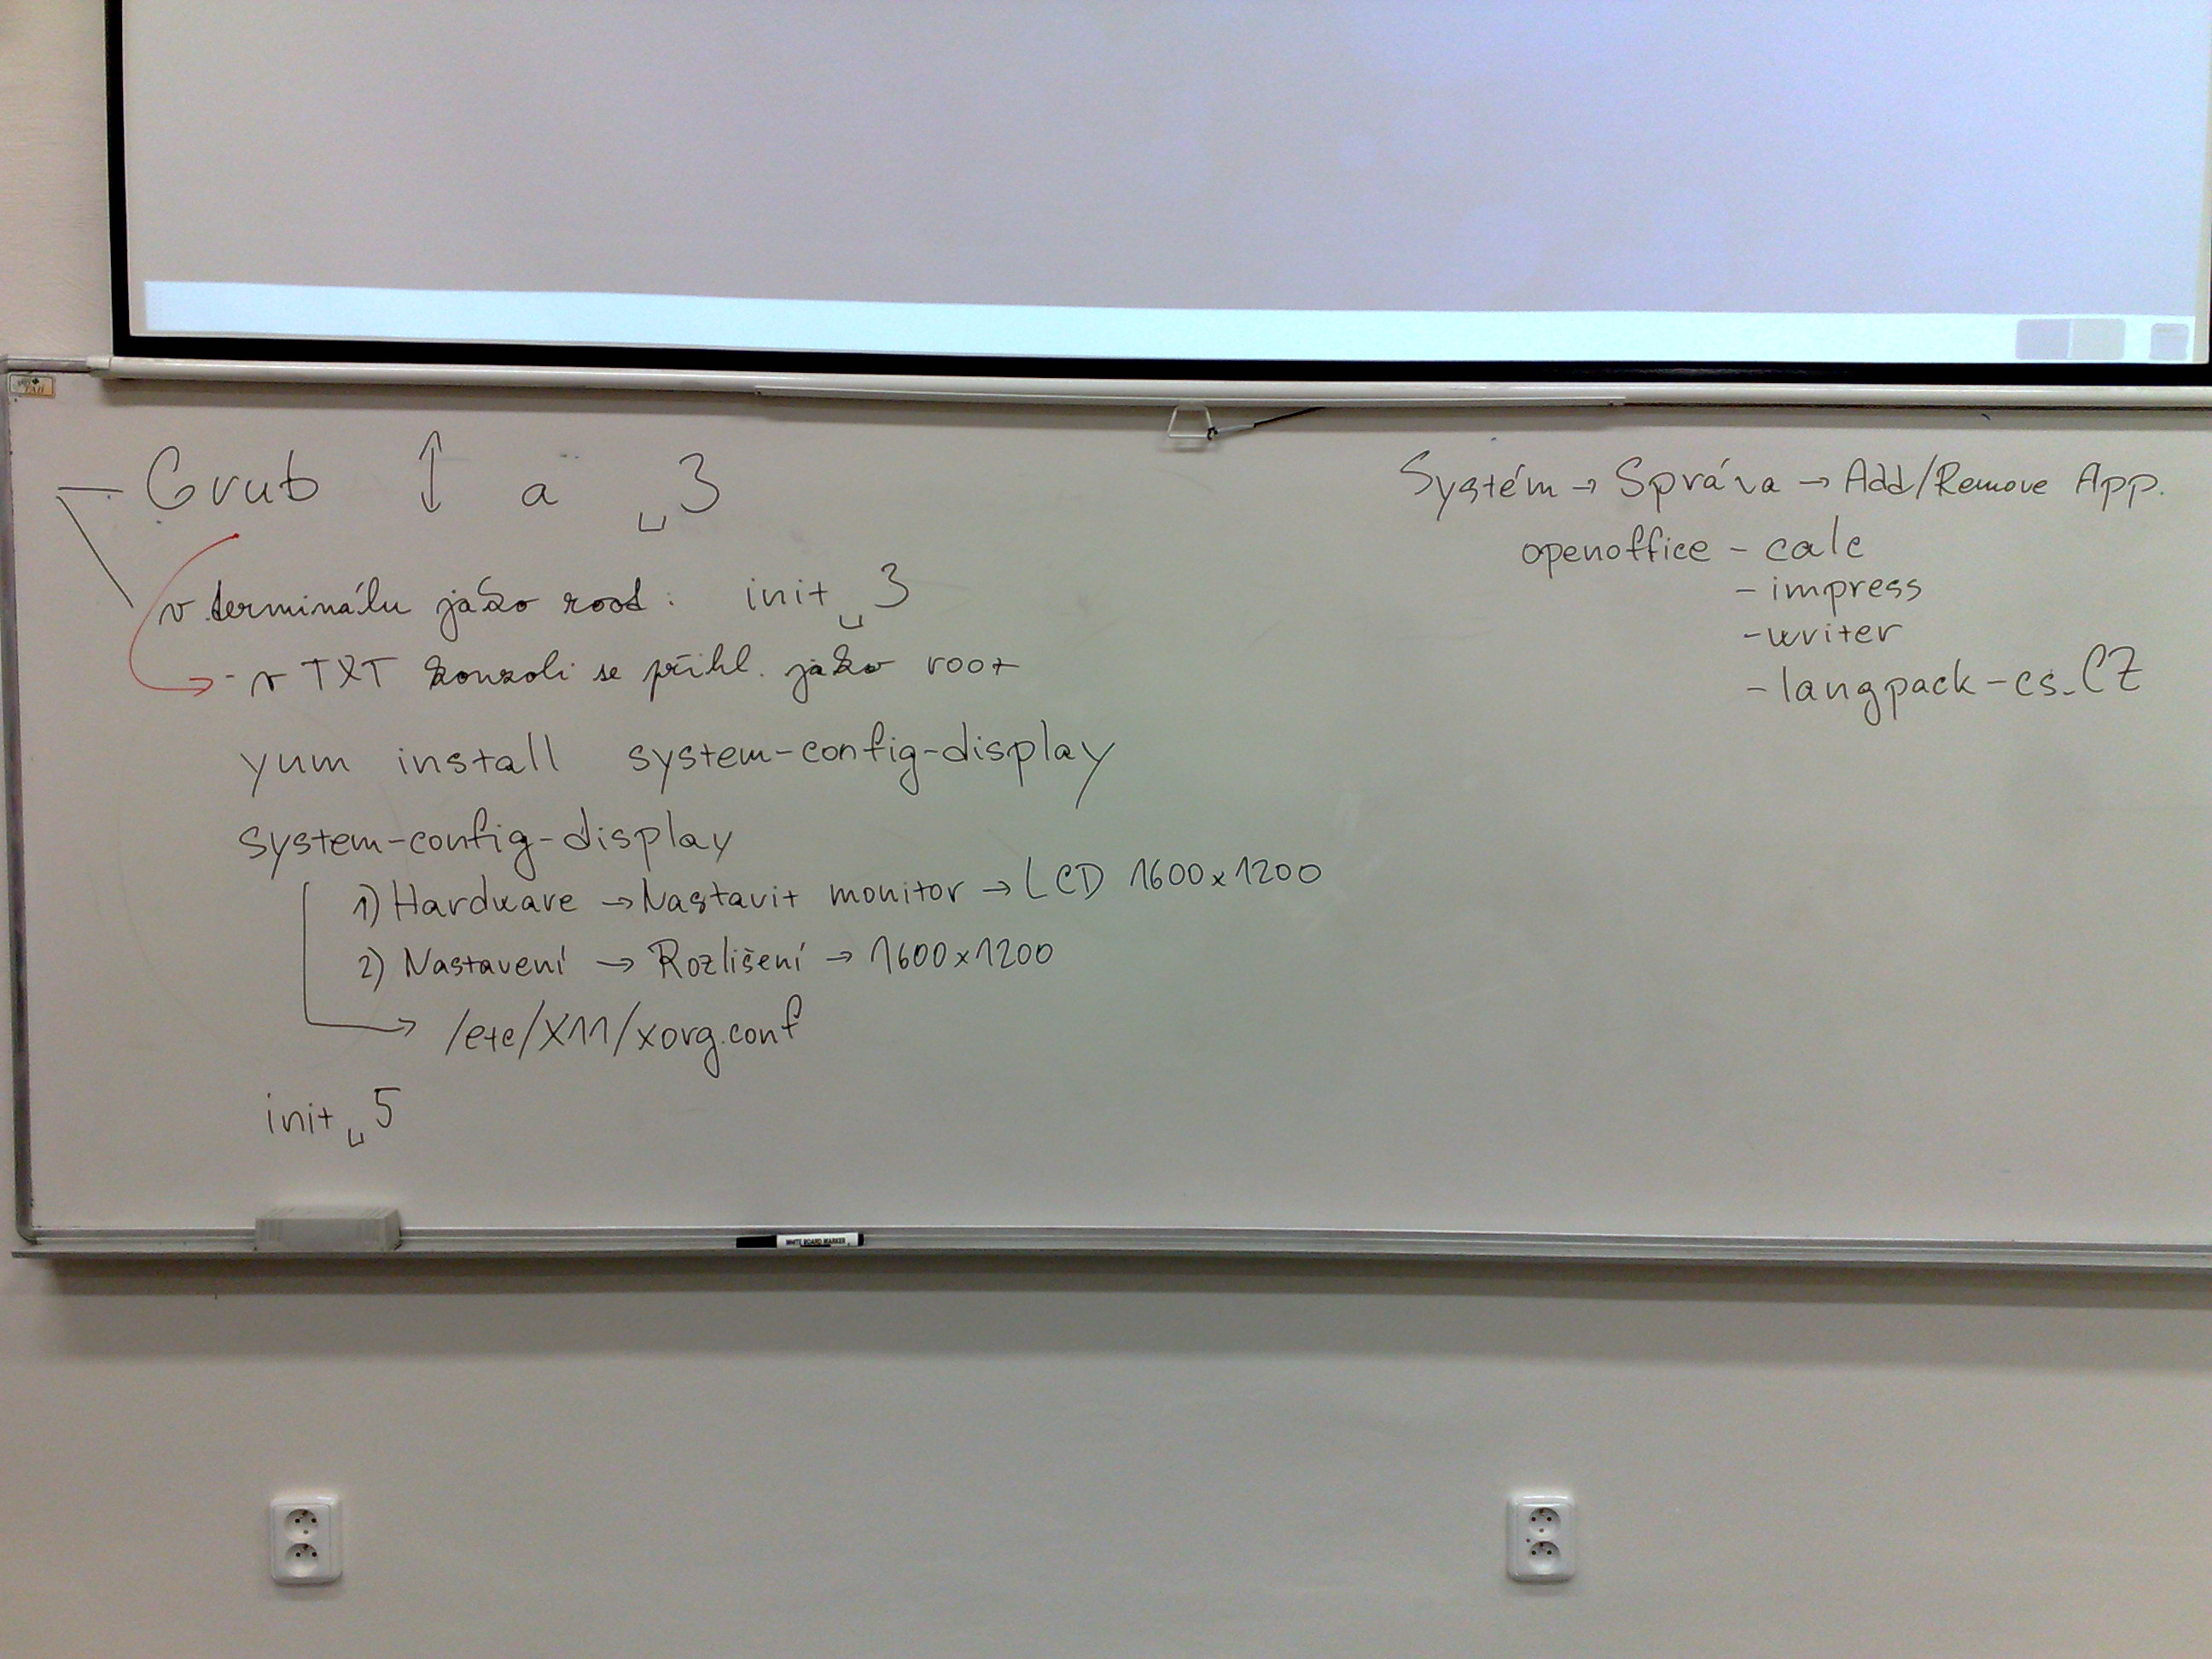 Grub ↕ a ␣3
v terminálu jako root: init␣3
- v TXT konzoli se přihl. jako root
yum install system-config-display
system-config-display
1) Hardware → Nastavit monitor → LCD 1600x1200
2) Nastavení → Rozlišení → 1600x1200
→ /etc/X11/xorg.conf
init␣5
Systém → Správa → Add/Remove App.
openoffice - calc
- impress
- writer
- langpack-cs_CZ
WHITE BOARD MARKER